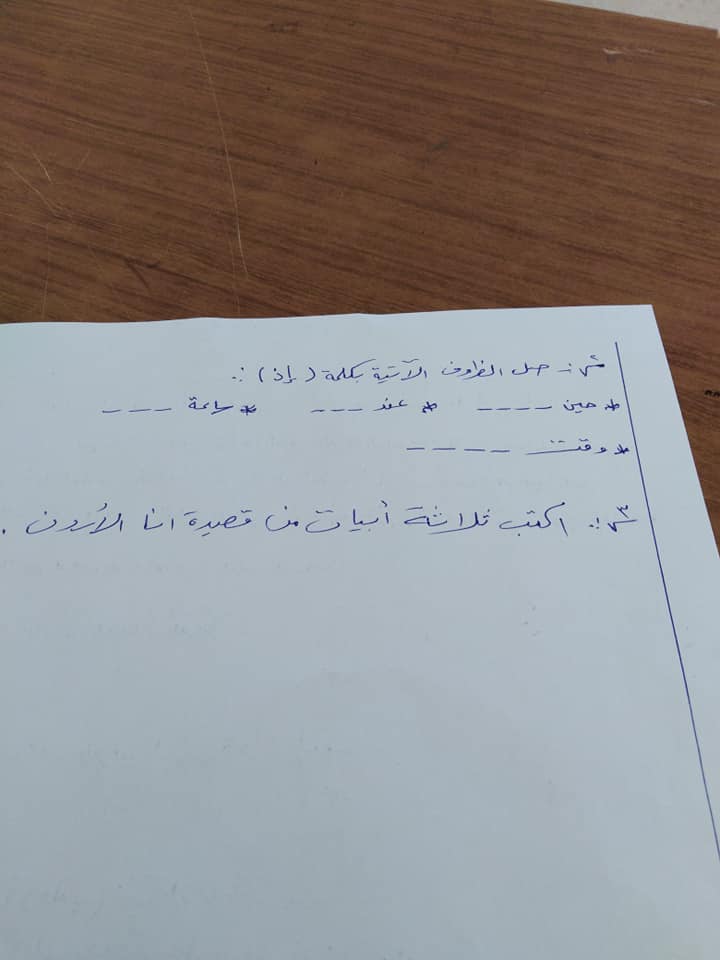 س٢:- صل الظروف الآتية بكلمة (إذ) :.
* حين ---- * عند --- * ساعة ---
* وقت ----
س٣:. اكتب ثلاثة أبيات من قصيدة انا الأردن .